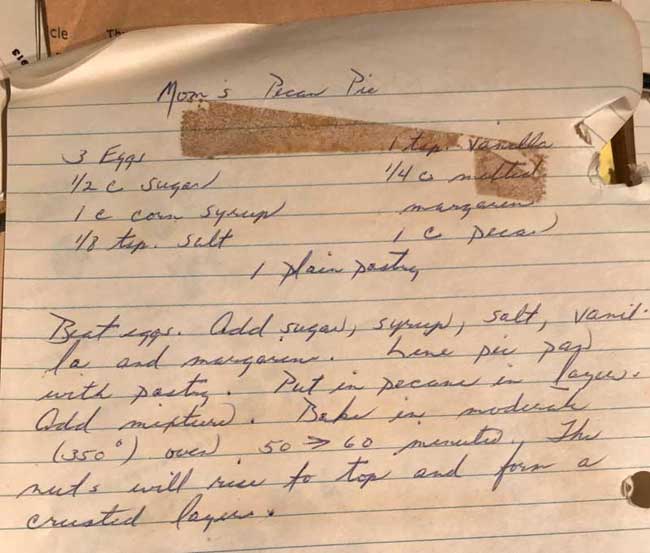 cle
Th
Mom's Pecan Pie
3 Eggs
1/2 c sugar
1 c corn syrup
1/8 tsp. salt
1 tsp. vanilla
1/4 c melted
margarin
1 c pecan
1 plain pastry
Beat eggs. Add sugar, syrup, salt, vanil-
la and margarin. Line pie pan
with pastry. Put in pecans in layer.
Add mixture. Bake in moderate
(350°) oven 50 → 60 minutes. The
nuts will rise to top and form a
crusted layer.